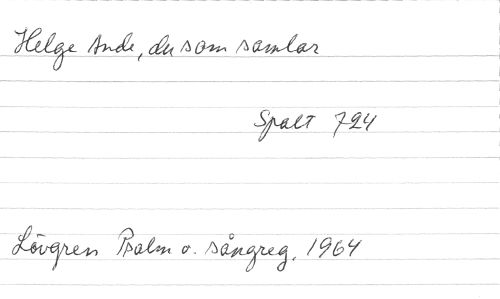 Helge Ande, du som samlar
Spalt 724
Lövgren Psalm o. sångreg. 1964